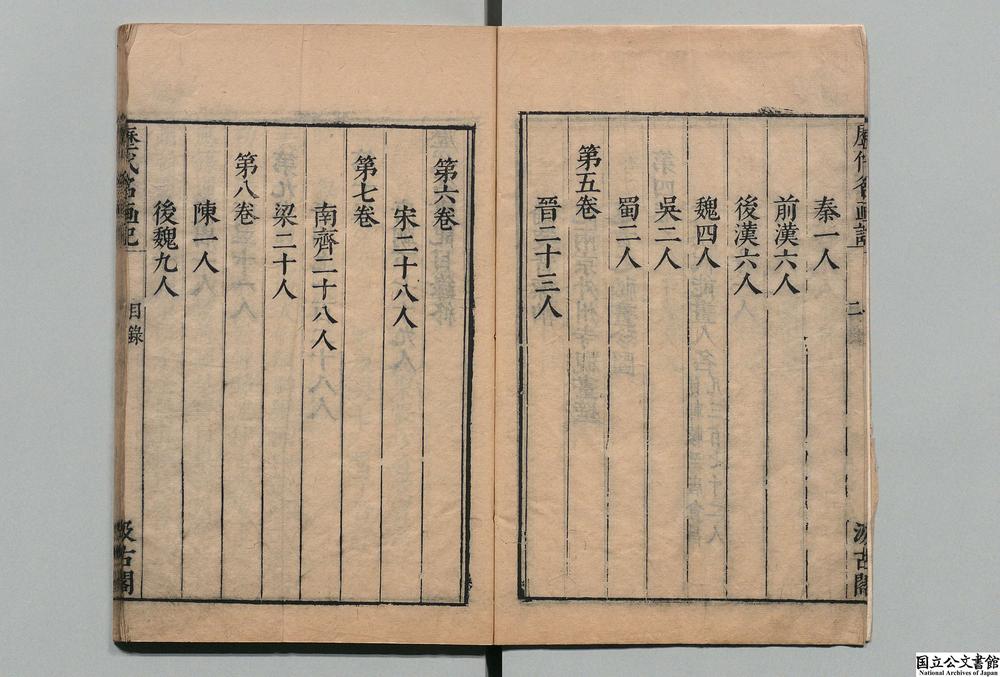 歷代名画記
二
秦一人
前漢六人
後漢六人
魏四人
吳二人
蜀二人
第五卷
晉二十三人
汲古閣
第六卷
宋二十八人
第七卷
南齊二十八人
梁二十人
第八卷
陳一人
後魏九人
歷代名画記
目錄
汲古閣
国立公文書館
National Archives of Japan